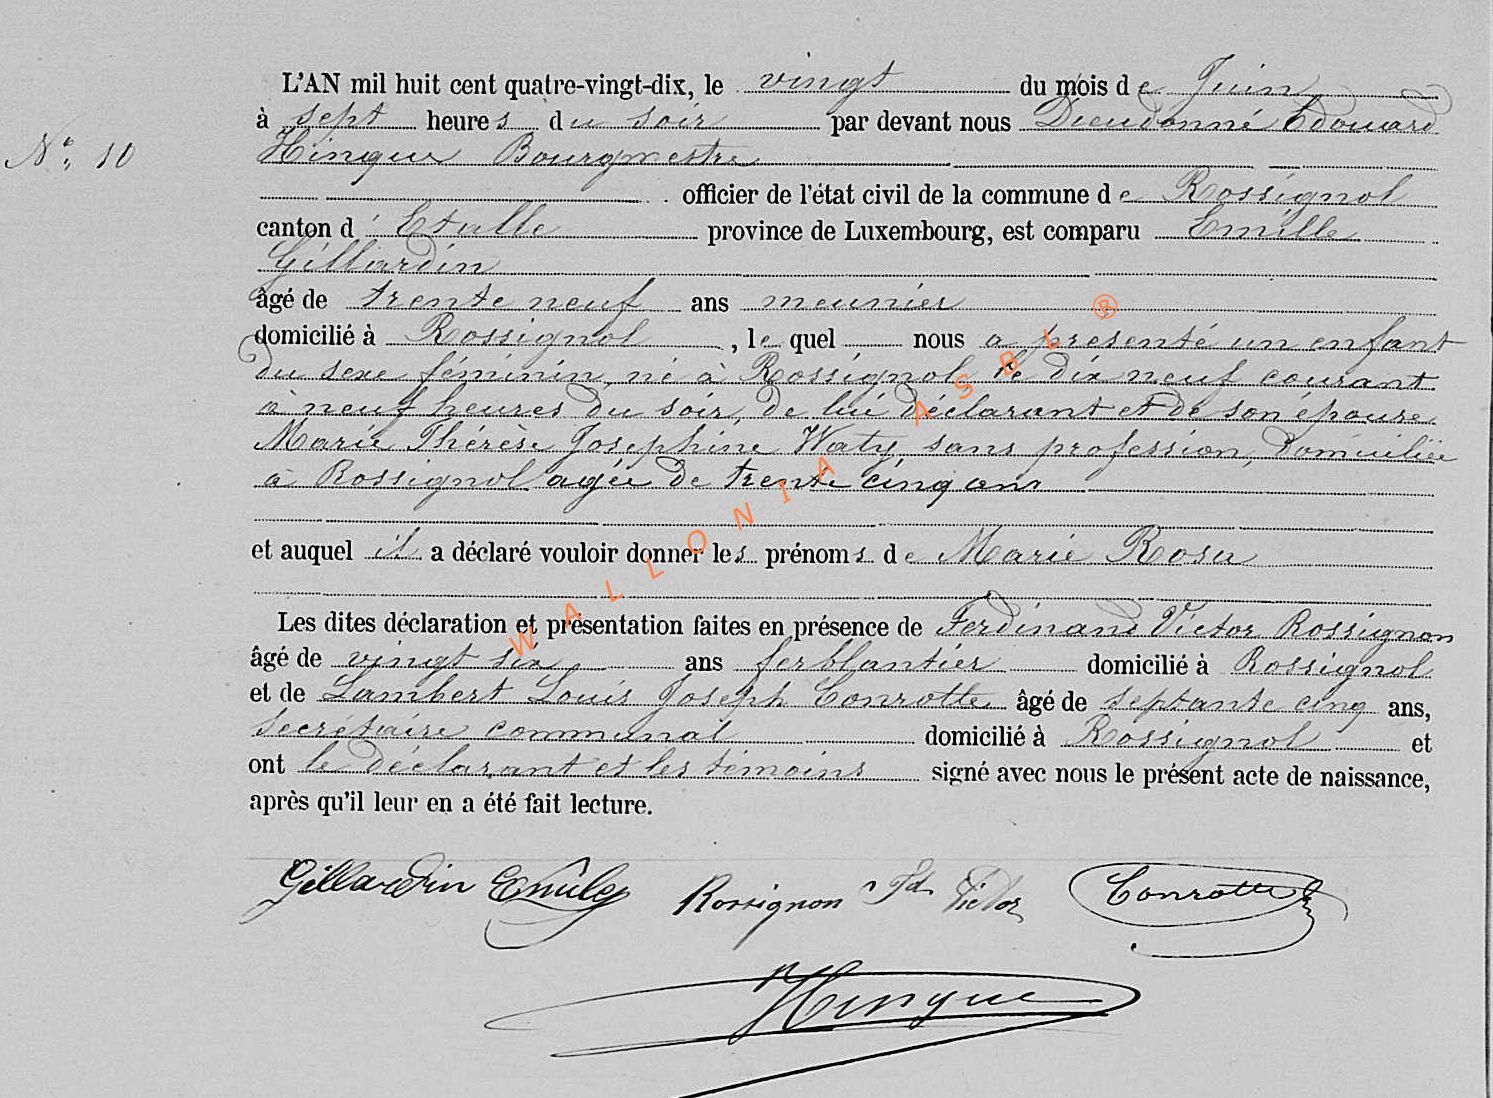 L'AN mil huit cent quatre-vingt-dix, le vingt du mois de Juin
à sept heures du soir par devant nous Dieudonné Edouard
N° 10
Hinque Bourgmestre
officier de l'état civil de la commune de Rossignol
canton d'Etalle province de Luxembourg, est comparu Emille
Gillardin
âgé de trente neuf ans meunier
domicilié à Rossignol, le quel nous a présenté un enfant
du sexe féminin, né à Rossignol, le dix neuf courant
à neuf heures du soir, de lui déclarant et de son épouse
Marie Thérèse Josephine Waty, sans profession, domiciliée
à Rossignol agée de trente cinq ans
et auquel il a déclaré vouloir donner les prénoms de Marie Rosa
Les dites déclaration et présentation faites en présence de Ferdinand Victor Rossignon
âgé de vingt six ans ferblantier domicilié à Rossignol
et de Lambert Louis Joseph Conrotte âgé de septante cinq ans,
secrétaire communal domicilié à Rossignol et
ont le déclarant et les témoins signé avec nous le présent acte de naissance,
après qu'il leur en a été fait lecture.
Gillardin Emile Rossignon Fd Victor Conrotte
Hinque
WALLONIA ASBL ®